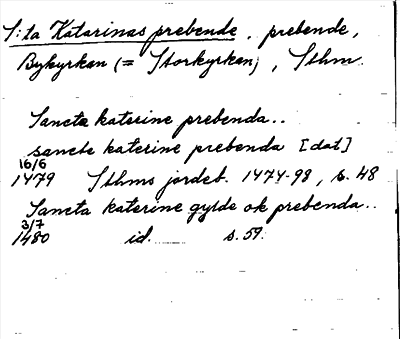 S:ta Katarinas prebende, prebende,
Bykyrkan (= Storkyrkan), Sthm.
Sancta katerine prebenda..
sancte katerine prebenda [dat]
16/6
1479 Sthms jordeb. 1474-98, s. 48
Sancta katerine gylde ok prebenda..
3/7
1480 id. s. 59.